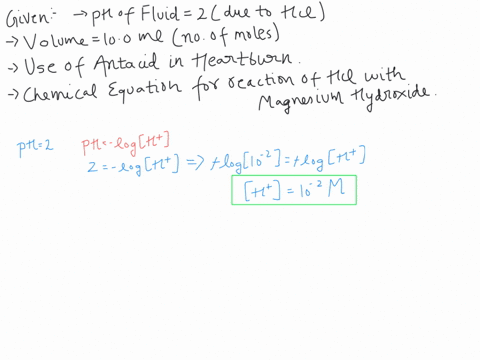 Given:- → pH of Fluid = 2 (due to HCl)
→ Volume = 10.0 ml (no. of moles)
→ Use of Antacid in Heartburn.
→ Chemical Equation for reaction of HCl with
Magnesium Hydroxide.
pH=2 pH=-log[H+]
2=-log[H+] => +log[10⁻²]=+log[H+]
[H+]=10⁻² M